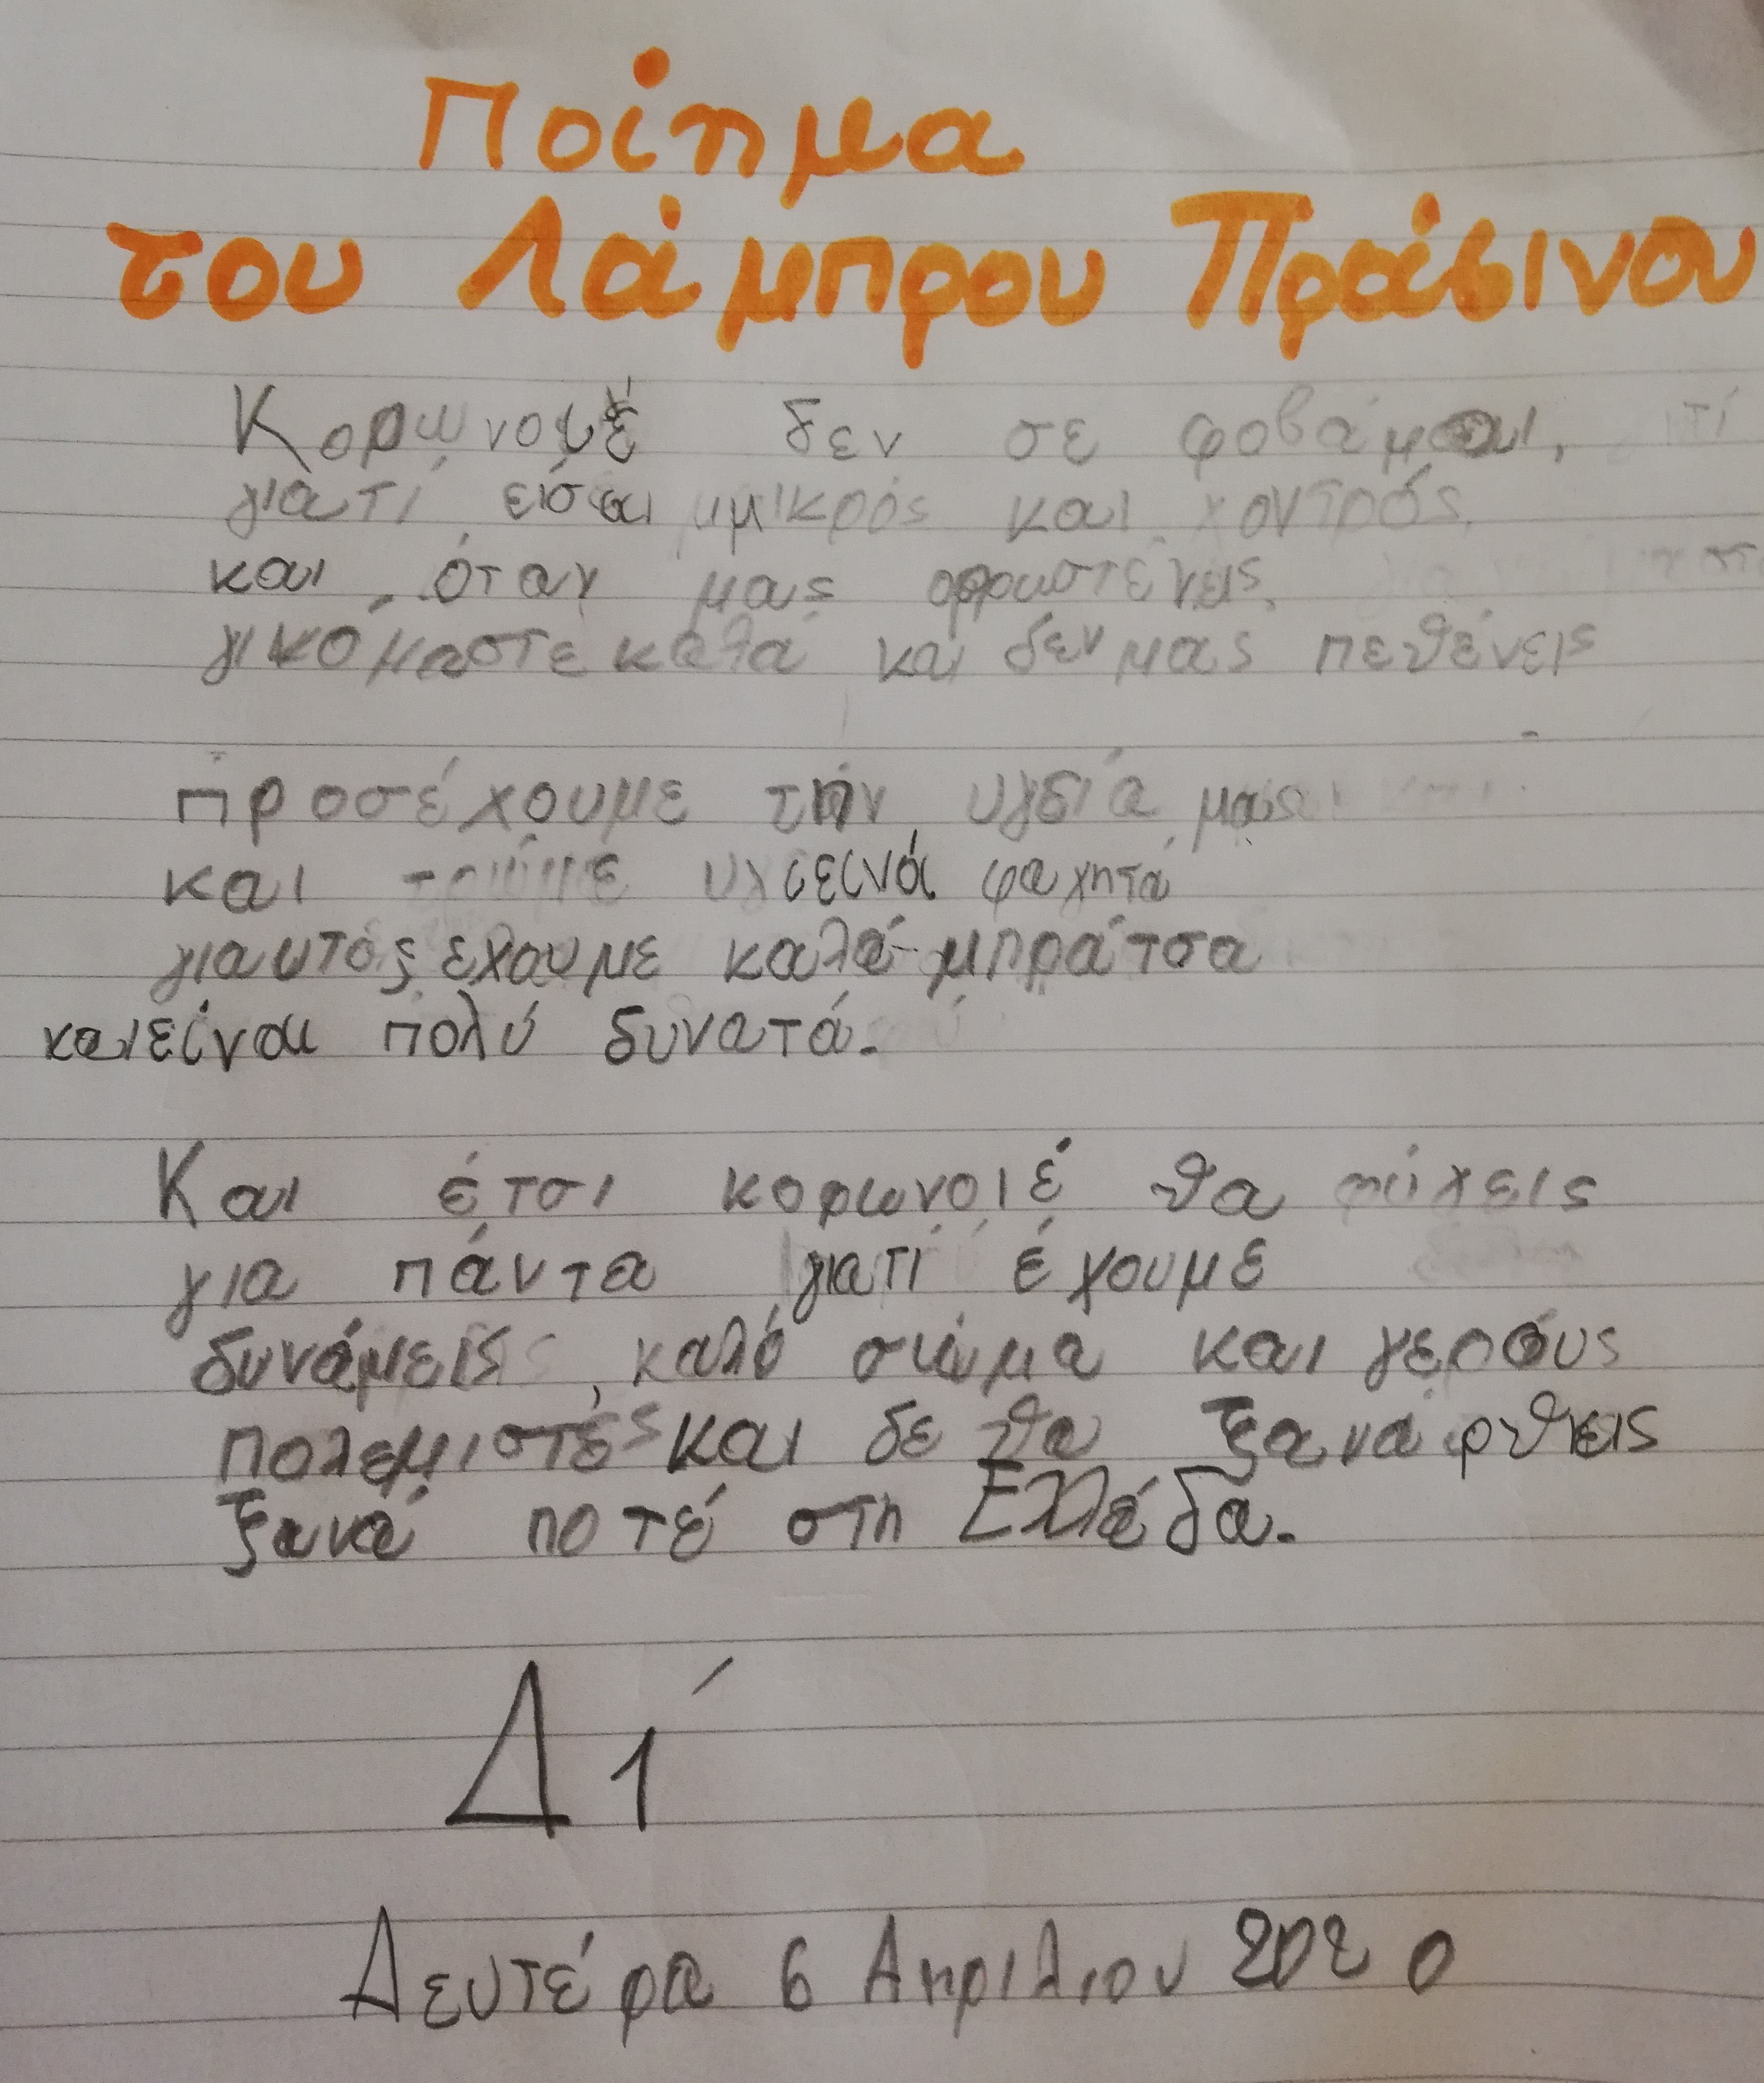 Ποίημα
του Λάμπρου Πράσινου
Κορωνοιέ δεν σε φοβάμαι,
γιατί είσαι μικρός και χοντρός
και όταν μας αρρωστένεις
γινόμαστε καλά και δεν μας πεθένεις
προσέχουμε την υγεία μας
και τρώμε υγιεινά φαγητά
γιαυτό έχουμε καλά μπράτσα
και είναι πολύ δυνατά.
Και έτσι κορωνοιέ θα φύγεις
για πάντα γιατί έχουμε
δυνάμεις, καλό σώμα και γερούς
πολεμιστές και δε θα ξαναρθεις
ξανά ποτέ στη Ελλάδα.
Δ1΄
Δευτέρα 6 Απριλιου 2020